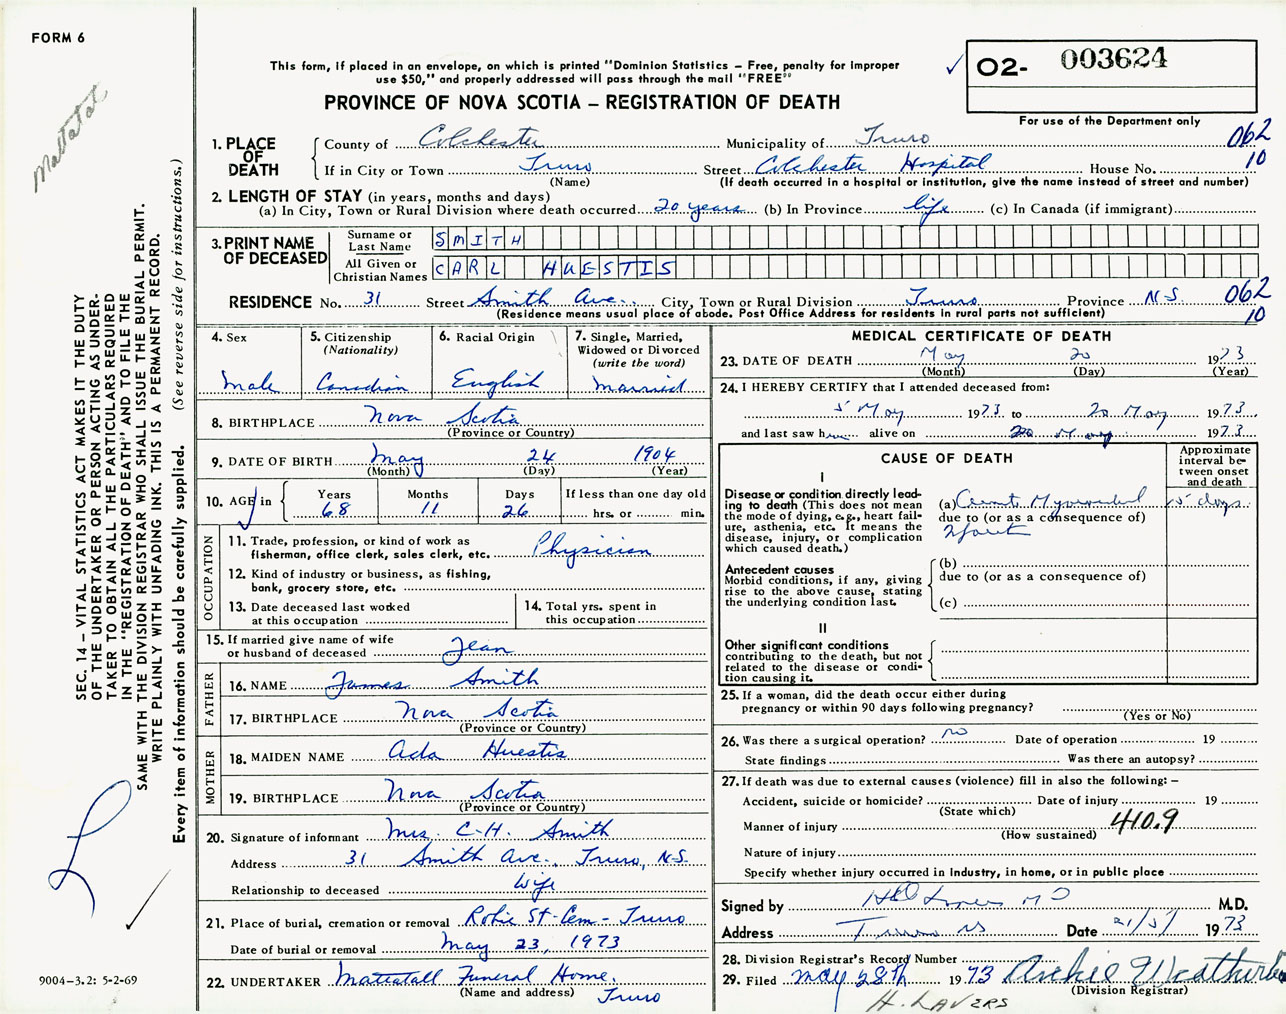 FORM 6
Mattatal
This form, if placed in an envelope, on which is printed "Dominion Statistics – Free, penalty for improper
use $50," and properly addressed will pass through the mail "FREE"
PROVINCE OF NOVA SCOTIA – REGISTRATION OF DEATH
O2- 003624
For use of the Department only
062
10
1. PLACE OF DEATH
County of Colchester Municipality of Truro
If in City or Town Truro Street Colchester Hospital House No.
(Name) (If death occurred in a hospital or institution, give the name instead of street and number)
2. LENGTH OF STAY (in years, months and days)
(a) In City, Town or Rural Division where death occurred 20 years (b) In Province life (c) In Canada (if immigrant)
3. PRINT NAME OF DECEASED
Surname or Last Name SMITH
All Given or Christian Names CARL HUESTIS
RESIDENCE No. 31 Street Smith Ave., City, Town or Rural Division Truro Province N.S. 062
(Residence means usual place of abode. Post Office Address for residents in rural parts not sufficient) 10
4. Sex
Male
5. Citizenship
(Nationality)
Canadian
6. Racial Origin
English
7. Single, Married,
Widowed or Divorced
(write the word)
Married
8. BIRTHPLACE Nova Scotia
(Province or Country)
9. DATE OF BIRTH May 24 1904
(Month) (Day) (Year)
10. AGE in
Years Months Days If less than one day old
68 11 26 hrs. or min.
OCCUPATION
11. Trade, profession, or kind of work as
fisherman, office clerk, sales clerk, etc. Physician
12. Kind of industry or business, as fishing,
bank, grocery store, etc.
13. Date deceased last worked
at this occupation
14. Total yrs. spent in
this occupation
15. If married give name of wife
or husband of deceased Jean
FATHER
16. NAME James Smith
17. BIRTHPLACE Nova Scotia
(Province or Country)
MOTHER
18. MAIDEN NAME Ada Huestis
19. BIRTHPLACE Nova Scotia
(Province or Country)
20. Signature of informant Mrs. C-H. Smith
Address 31 Smith Ave., Truro, N-S.
Relationship to deceased Wife
21. Place of burial, cremation or removal Robie St-Cem-Truro
Date of burial or removal May 23, 1973
22. UNDERTAKER Mattatall Funeral Home,
(Name and address) Truro
MEDICAL CERTIFICATE OF DEATH
23. DATE OF DEATH May 20 1973
(Month) (Day) (Year)
24. I HEREBY CERTIFY that I attended deceased from:
5 May 1973 to 20 May 1973
and last saw him alive on 20 May 1973
CAUSE OF DEATH
Approximate
interval be-
tween onset
and death
I
Disease or condition directly lead-
ing to death (This does not
mean the mode of dying, e.g., heart fail-
ure, asthenia, etc. It means the
disease, injury, or complication
which caused death.)
(a) Acute Myocardial 15 days
due to (or as a consequence of)
Infarct
Antecedent causes
Morbid conditions, if any, giving
rise to the above cause, stating
the underlying condition last.
(b)
due to (or as a consequence of)
(c)
II
Other significant conditions
contributing to the death, but not
related to the disease or condi-
tion causing it.
25. If a woman, did the death occur either during
pregnancy or within 90 days following pregnancy?
(Yes or No)
26. Was there a surgical operation? no Date of operation 19
State findings Was there an autopsy?
27. If death was due to external causes (violence) fill in also the following: –
Accident, suicide or homicide? Date of injury 19
(State which)
Manner of injury 410.9
(How sustained)
Nature of injury
Specify whether injury occurred in industry, in home, or in public place
Signed by M D M.D.
Address Truro NS Date 21/5/ 1973
28. Division Registrar's Record Number
29. Filed May 28th 1973 Archie Weatherbe
(Division Registrar)
H. LAVERS
SEC. 14 – VITAL STATISTICS ACT MAKES IT THE DUTY
OF THE UNDERTAKER OR PERSON ACTING AS UNDER-
TAKER TO OBTAIN ALL THE PARTICULARS REQUIRED
IN THE "REGISTRATION OF DEATH" AND TO FILE THE
SAME WITH THE DIVISION REGISTRAR WHO SHALL ISSUE THE BURIAL PERMIT.
WRITE PLAINLY WITH UNFADING INK. THIS IS A PERMANENT RECORD.
Every item of information should be carefully supplied. (See reverse side for instructions.)
9004-3.2: 5-2-69